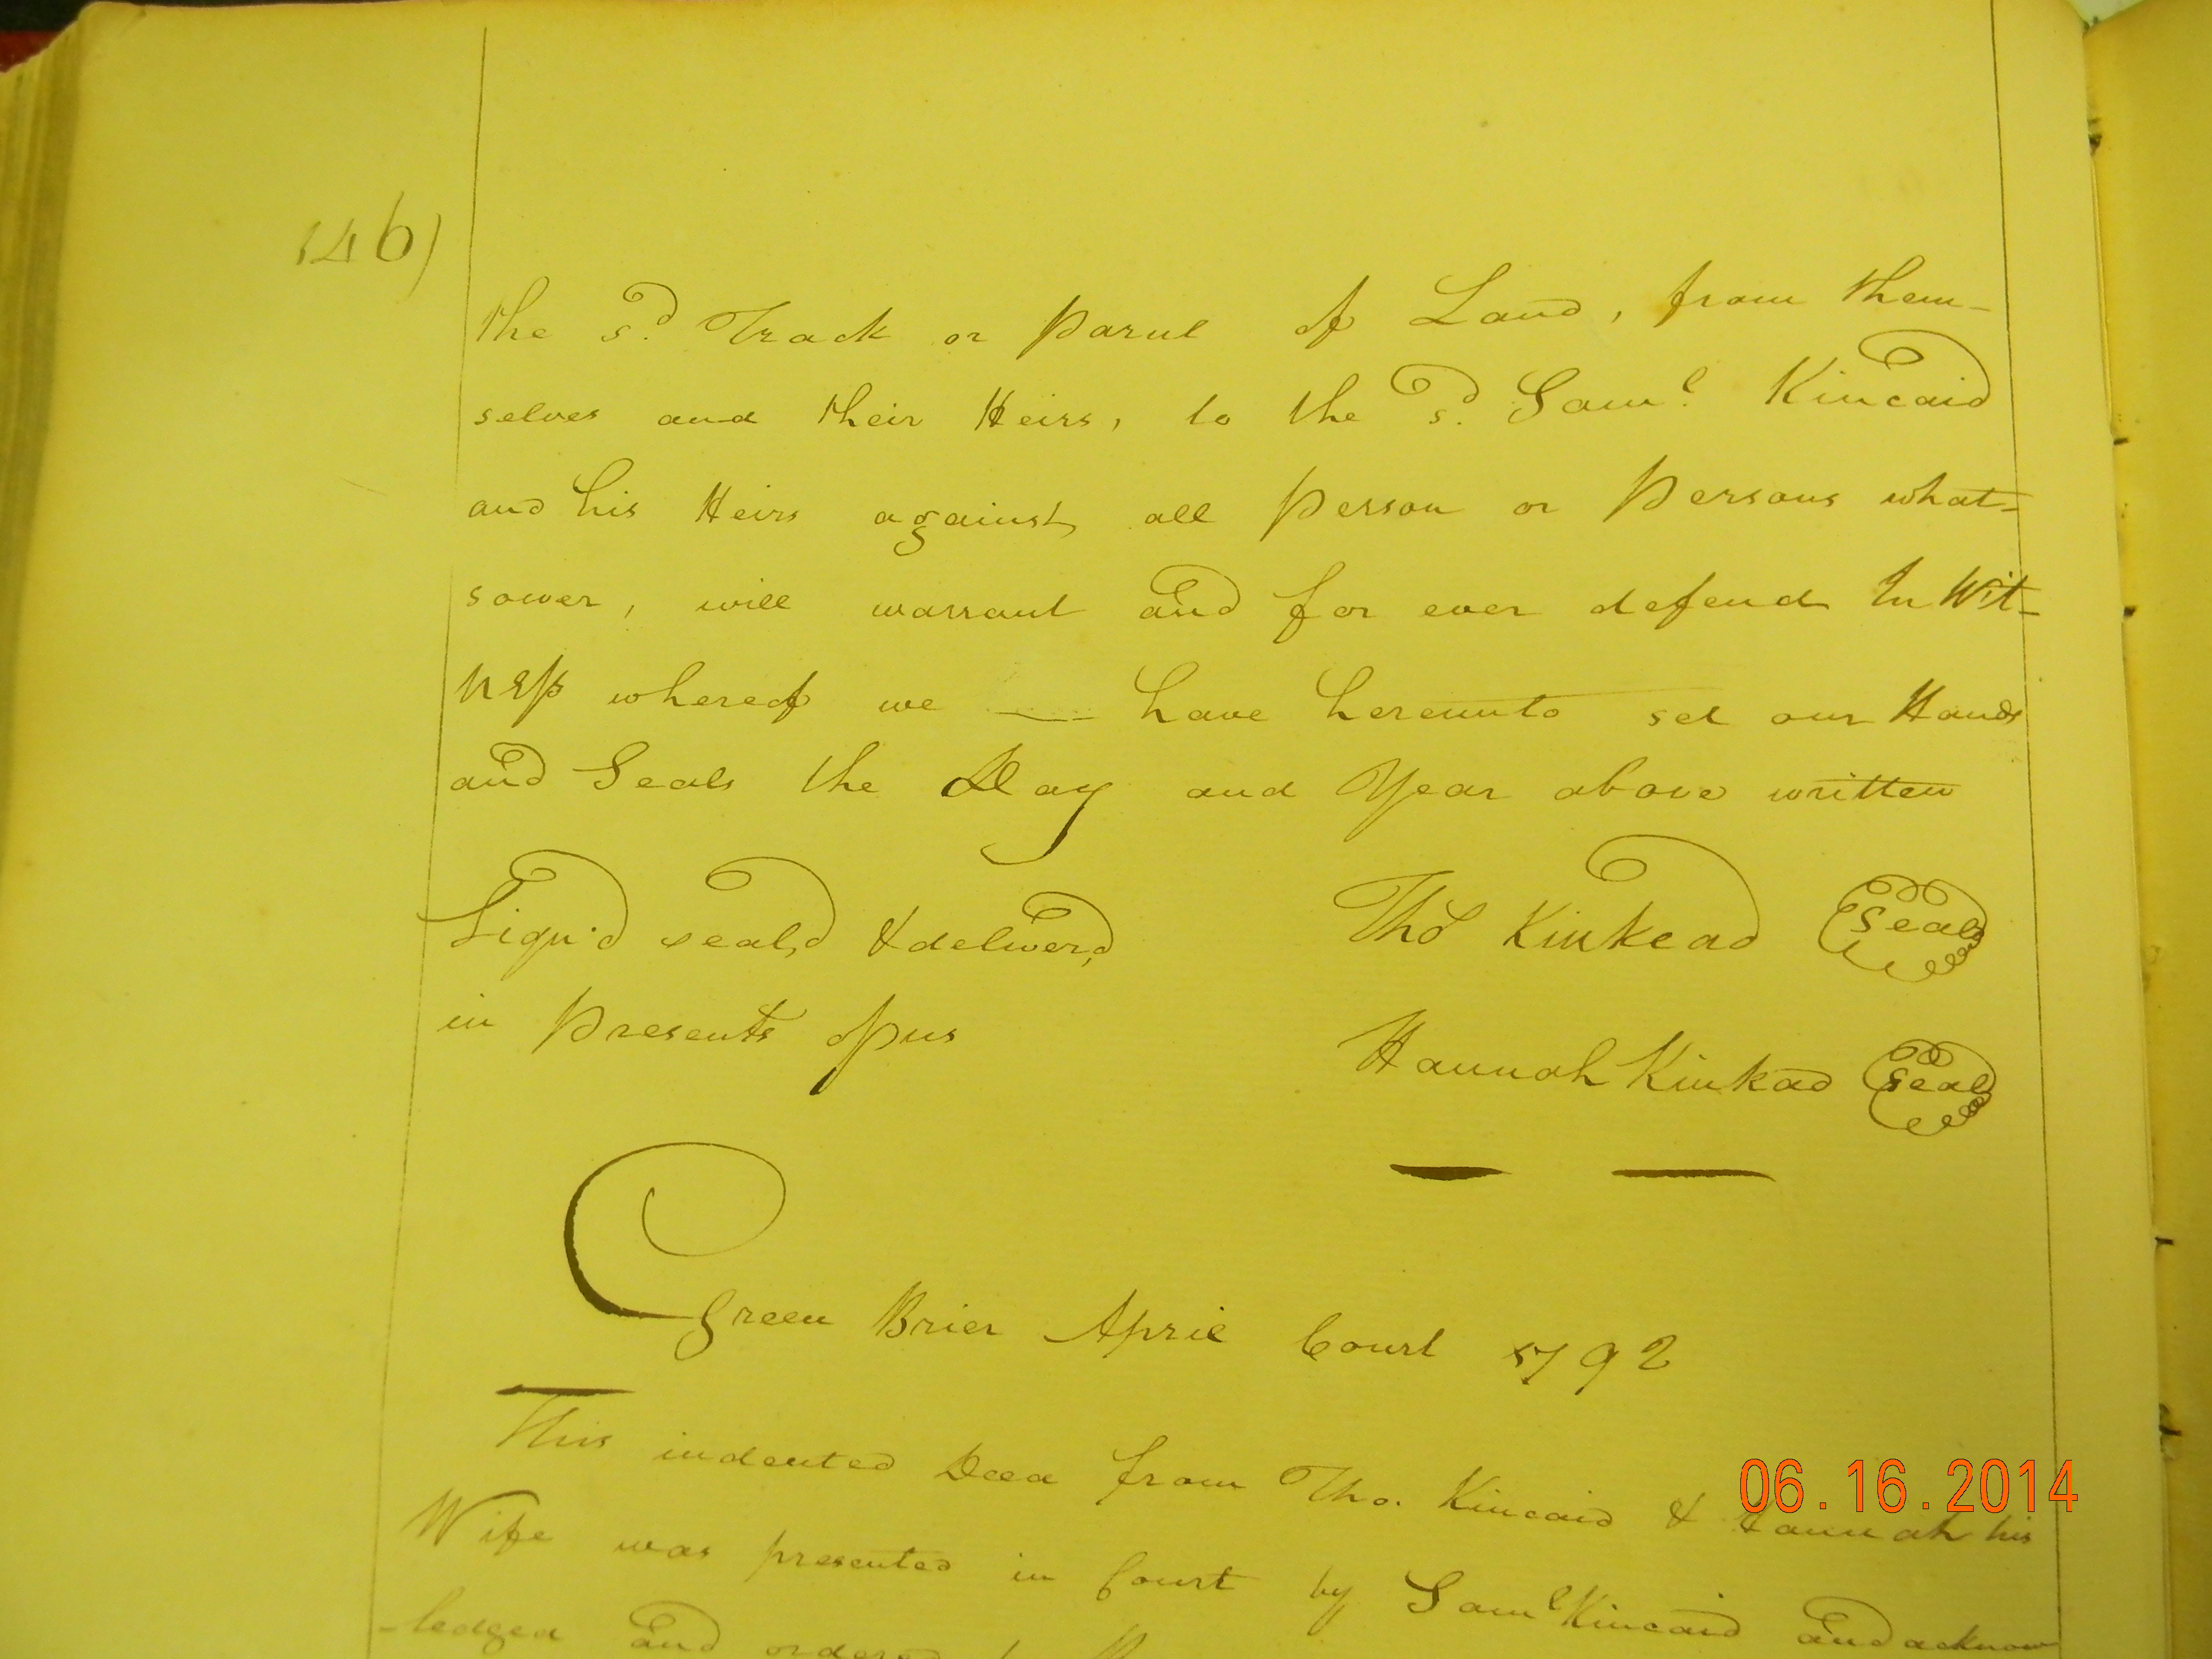 146)
the sd. Track or Parcel of Land, from them-
selves and their Heirs, to the sd. Saml. Kincaid
and his Heirs against all Person or Persons what-
sower, will warrant and for ever defend In Wit-
ness whereof we — have hereunto set our Hands
and Seals the Day and Year above written
Sign'd seal,d & deliver,d
Thos Kinkead Seal
in Presents of us
Hannah Kinkad Seal
Green Brier April Court 1792
This indented Deed from Tho. Kincaid & Hannah his
Wife was presented in Court by Saml Kincaid and acknow
-ledged and ordered
06.16.2014